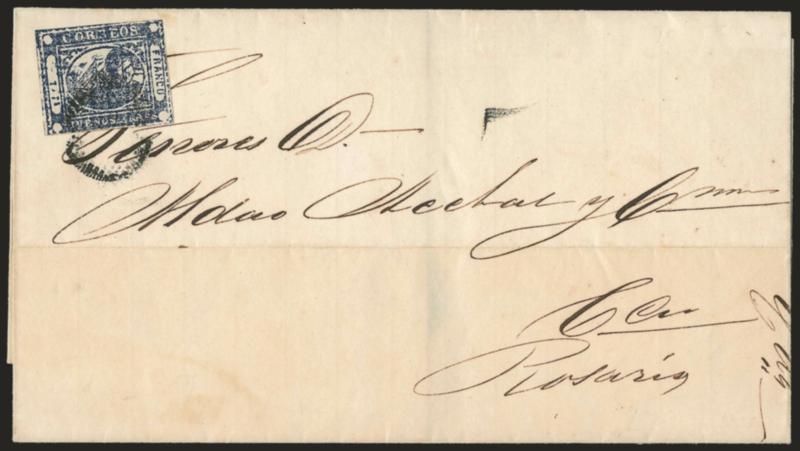 CORREOS
FRANCO
BUENOS AIRES
Señores D.
Aldao Acebal y Cᵐ
En
Rosario